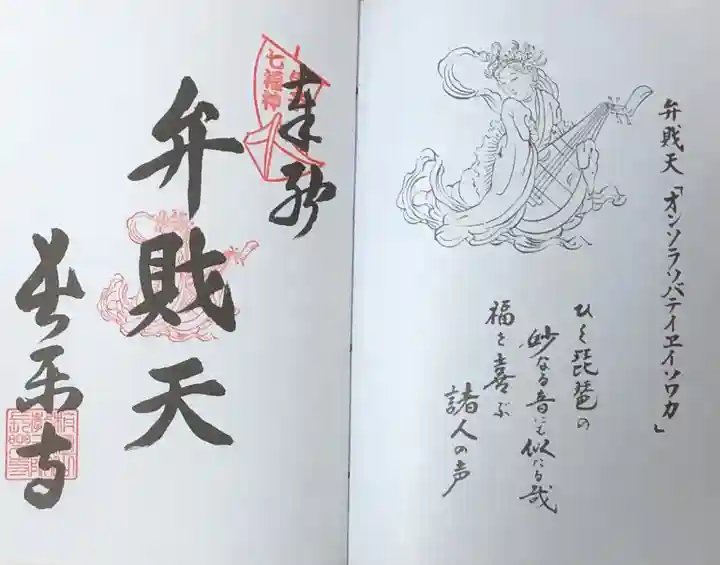 弁財天「オンソラソバテイエイソワカ」
ひく琵琶の
妙なる音にも似たる哉
福を喜ぶ
諸人の声
奉拝
七福神
弁財天
長楽寺